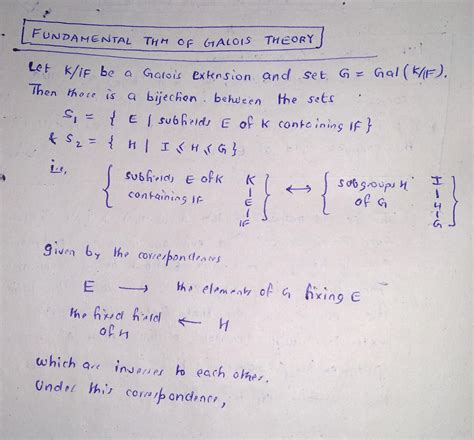 FUNDAMENTAL THM OF GALOIS THEORY
Let K/IF be a Galois extension and set G = Gal(K/IF).
Then there is a bijection between the sets
S₁ = { E | subfields E of K containing IF }
& S₂ = { H | I ≤ H ≤ G }
i.e, { subfields E of K K } ↔ { subgroups H I }
containing IF E of G H
IF G
given by the correspondences
E → the elements of G fixing E
the fixed field ← H
of H
which are inverses to each other.
Under this correspondence,